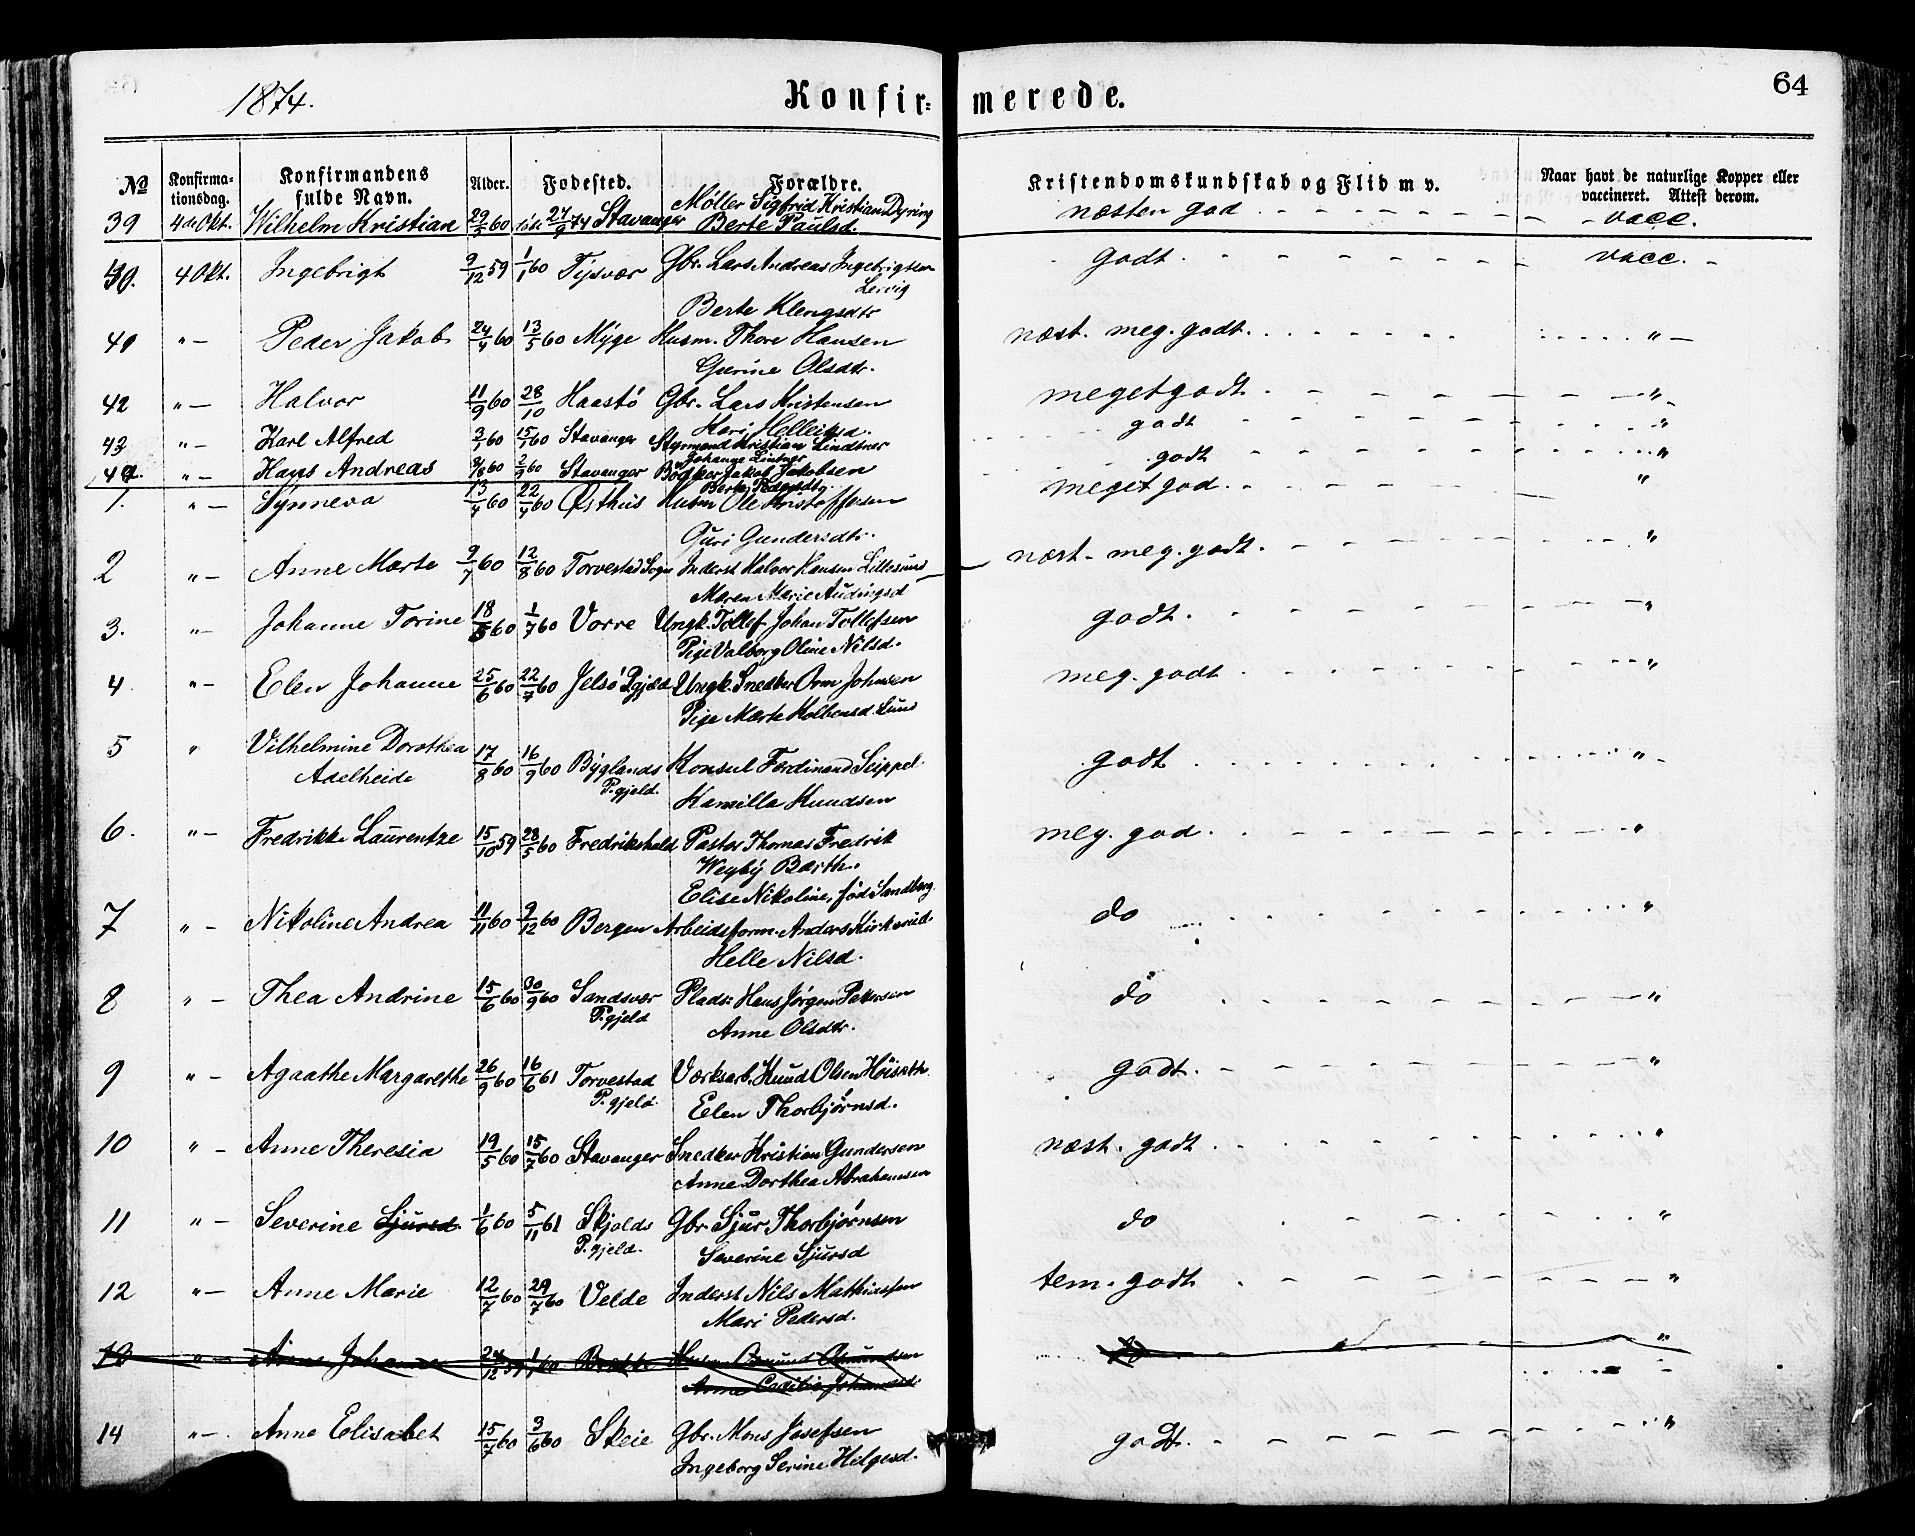 1874.
Konfir=
merede.
64
No
Konfirma-
tionsdag.
Konfirmandens
fulde Navn.
Alder.
Fødested.
Forældre.
Kristendomskundskab og Flid m v.
Naar havt de naturlige Kopper eller
vaccineret. Attest derom.
39 4de Okt. Wilhelm Kristian 29/5 60 27/9 74 Stavanger Møller Sigfrid Kristian Dyring næsten god vacc.
Berte Paulsd.
40. 4 Okt. Ingebrigt 9/12 59 1/1 60 Tysvær Gbr. Lars Andreas Ingebrigtsen godt vacc.
Lervig
Berte Klengsdtr
41 " Peder Jakob 24/4 60 13/5 60 Myge Husm. Thore Hansen næst. meg. godt. "
Gurine Olsdtr.
42 " Halvor 11/9 60 28/10 Haastö Gbr. Lars Kristensen meget godt "
Kari Helliksd.
43 " Karl Alfred 3/1 60 15/1 60 Stavanger Styrmand Kristian Lindtner godt "
Johanne Lintner
44. " Hans Andreas 3/8 60 2/9 60 Stavanger Bødker Jakob Jakobsen godt "
Berte Pedersdtr.
1. " Synneva 13/4 60 22/4 60 Østhus Husm Ole Kristoffersen meget god "
Guri Gundersdtr.
2 " Anne Marte 9/7 60 12/8 60 Torvestad Sogn Inderst Halvor Hansen Lillesund næst. meg. godt. "
Maren Marie Audingsd
3. " Johanne Torine 18/5 60 1/7 60 Vorre Ungk. Tollef Johan Tollefsen godt. "
Pige Valborg Oline Nilsd.
4 " Elen Johanne 25/6 60 22/7 60 Jelsö Pgjæld Ungk. Snedker Orm Johnsen meg. godt "
Pige Marte Kolbensd. Lund
5 " Vilhelmine Dorothea 17/8 60 16/9 60 Byglands Konsul Ferdinand Seippel godt "
Adelheide P.gjeld.
Kamilla Knudsen
6. " Fredrikke Laurentze 15/10 59 28/5 60 Fredrikshald Pastor Thomas Fredrik meg. god "
Wegby Barth.
Elise Nikoline, fød Sandberg.
7 " Nikoline Andrea 11/11 60 9/12 60 Bergen Arbeidsform. Anders Kirkerud do "
Helle Nilsd.
8 " Thea Andrine 15/6 60 30/9 60 Sandsvær Plads. Hans Jørgen Petersen do "
P.gjeld
Anne Olsdtr.
9 " Agaathe Margarethe 26/9 60 16/6 61 Torvestad Værksarb. Knud Olsen Höiseth godt. "
P.gjeld.
Elen Thorbjørnsd.
10 " Anne Theresia 19/5 60 15/7 60 Stavanger Snedker Kristian Gundersen næst. godt "
Anne Dorthea Abrahamsen
11 " Severine Sjursd 1/6 60 5/11 61 Skjolds Gbr. Sjur Thorbjørnsen do "
P.gjeld.
Severine Sjursd
12 " Anne Marie 12/7 60 29/7 60 Velde Inderst Nils Mathiassen tem. godt "
Mari Pedersd.
13 " Anne Johanne 24/12 59 1/1 60 Husm. Osmund Osmundsen do "
Anne Cecilie Johannesd.
14 " Anne Elisabet 15/7 60 3/6 60 Skeie Gbr. Mons Josefsen godt. "
Ingeborg Serine Helgesd.